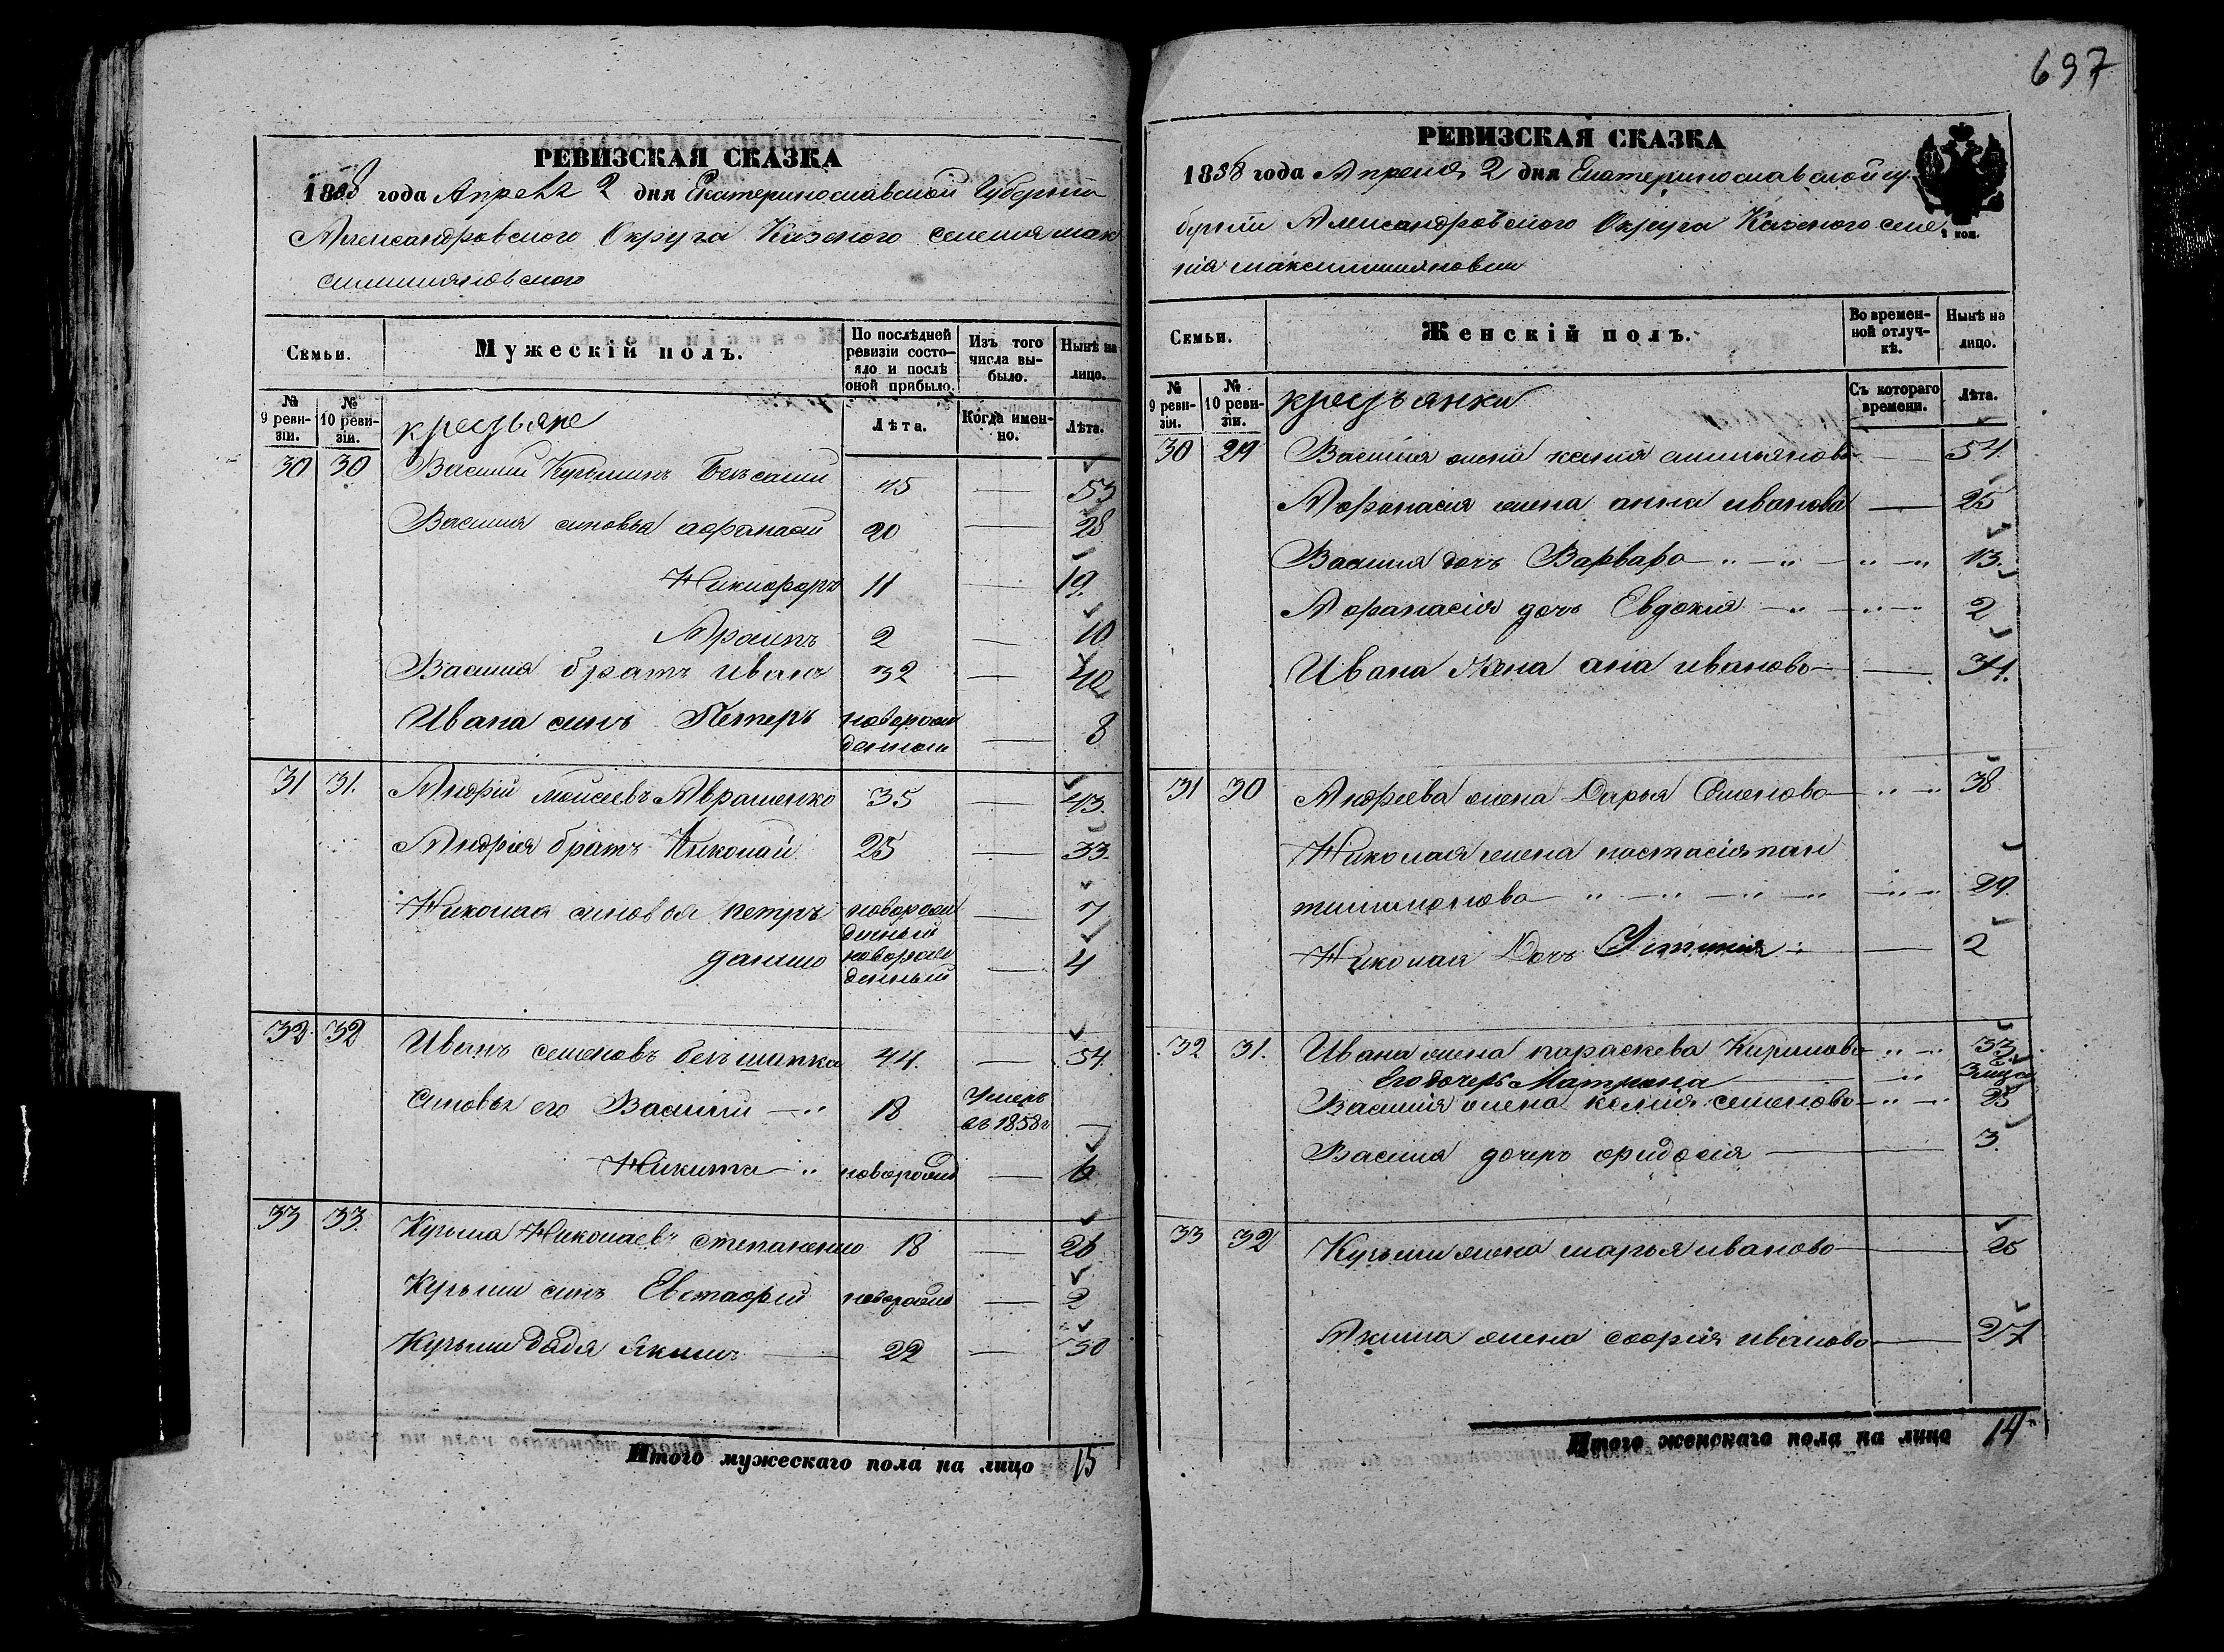 697
РЕВИЗСКАЯ СКАЗКА
1858 года Апреля 2 дня Екатеринославской Губернии
Александровского Округа Казеного селения мак
симилияновского
Семьи.
Мужескій полъ.
По послѣдней ревизіи состояло и послѣ оной прибыло.
Изъ того числа выбыло.
Нынѣ на лицо.
№ 9 ревизіи.
№ 10 ревизіи.
крестьяне
Лѣта.
Когда именно.
Лѣта.
30 30 Василий Кузьминъ 45 — 53
Василия синовья афанасий 20 — 28
Никифоръ 11 — 19.
2 — 10
Василия братъ иванъ 32 — 40
Ивана синъ Петеръ новорож
денной — 8
31 31. Андрій моисеевъ Аврашенко 35 — 43.
Андрія братъ Николай 25 — 33.
Николая синовья петръ новорож
денный — 7
данило новорож
денный — 4
32. 32 Иванъ семеновъ белъшапка 44. — 54.
Синовья его Василий — 18 Умеръ
въ 1858 г —
Никита — новорожд — 6
33 33. Кузьма Николаевъ степаненко 18 — 26
Кузьми синъ Евстафий новорожд — 2
Кузьми дядя Якимъ — 22 — 30
Итого мужескаго пола на лицо 15
РЕВИЗСКАЯ СКАЗКА
1858 года Апреля 2 дня Екатеринославской гу
берніи Александровского Округа Казеного селе
нія максимилияновки
1 коп.
Семьи.
Женскій полъ.
Во временной отлучкѣ.
Нынѣ на лицо.
№ 9 ревизіи.
№ 10 ревизіи.
крестьянки
Съ котораго времени.
Лѣта.
30 29 Василия жена ксения — 54.
Афанасія жена анна иванова — 25
Василия дочъ Варвара — 13.
Афанасія дочъ Евдокия — 2
Ивана Жена ана иванова — 34.
31 30 Андреева жена Дарья Семенова — 38
Николая жена настасія пан
тилимонова — 29.
Николая Дочъ Устиния — 2
32 31. Ивана жена параскева Кирилова — 33
Его дочеръ Матрена — 3 мцо
Василия жена ксения семенова — 25
Василия дочеръ фидосия — 3.
33 32 Кузьми жена марья иванова — 25
Акима жена софия иванова — 27
Итого женскаго пола на лицо 14